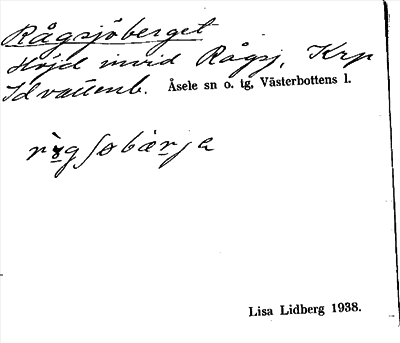 Rågsjöberget
Höjd invid Rågsj, Krp
Idvattenb. Åsele sn o. tg, Västerbottens l.
Lisa Lidberg 1938.